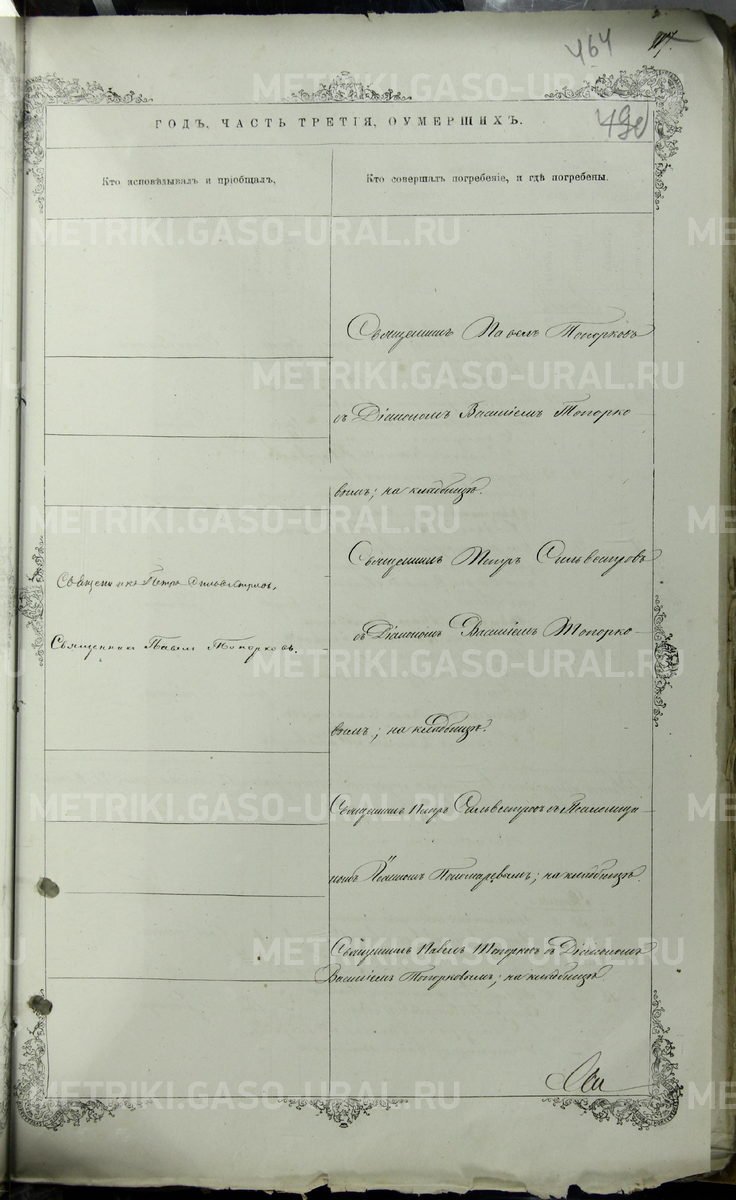 464
117.
490
ГОДЪ, ЧАСТЬ ТРЕТІЯ, ОУМЕРШИХЪ.
Кто исповѣдывалъ и пріобщалъ,
Кто совершалъ погребеніе, и гдѣ погребены.
Священникъ Павелъ Топорковъ
съ Діакономъ Василіемъ Топорко
вымъ; на кладбищѣ.
Священникъ Петръ Сильвестровъ
съ Діакономъ Василіемъ Топорко
вымъ; на кладбищѣ.
Священникъ Петръ Сильвестровъ,
Священникъ Павелъ Топорковъ.
Священникъ Петръ Сильвестровъ съ
Іоанномъ Пономаревымъ; на кладбищѣ.
Священникъ Павелъ Топорковъ съ Діакономъ
Василіемъ Топорковымъ; на кладбищѣ
METRIKI.GASO-URAL.RU